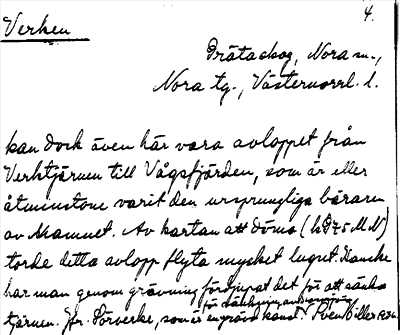 Verken
4.
Prätaskog, Nora sn.,
Nora tg., Västernorrl. l.
kan dock även här vara avloppet från
Verktjärnen till Vågsfjärden, som är eller
åtminstone varit den ursprungliga bäraren
av namnet. Av kartan att döma
torde detta avlopp flyta mycket lugnt. Kanske
har man genom grävning fördjupat det för att sänka
för sänkning
tjärnen. Jfr. Förverke, som är ingrävd kanal. Sven